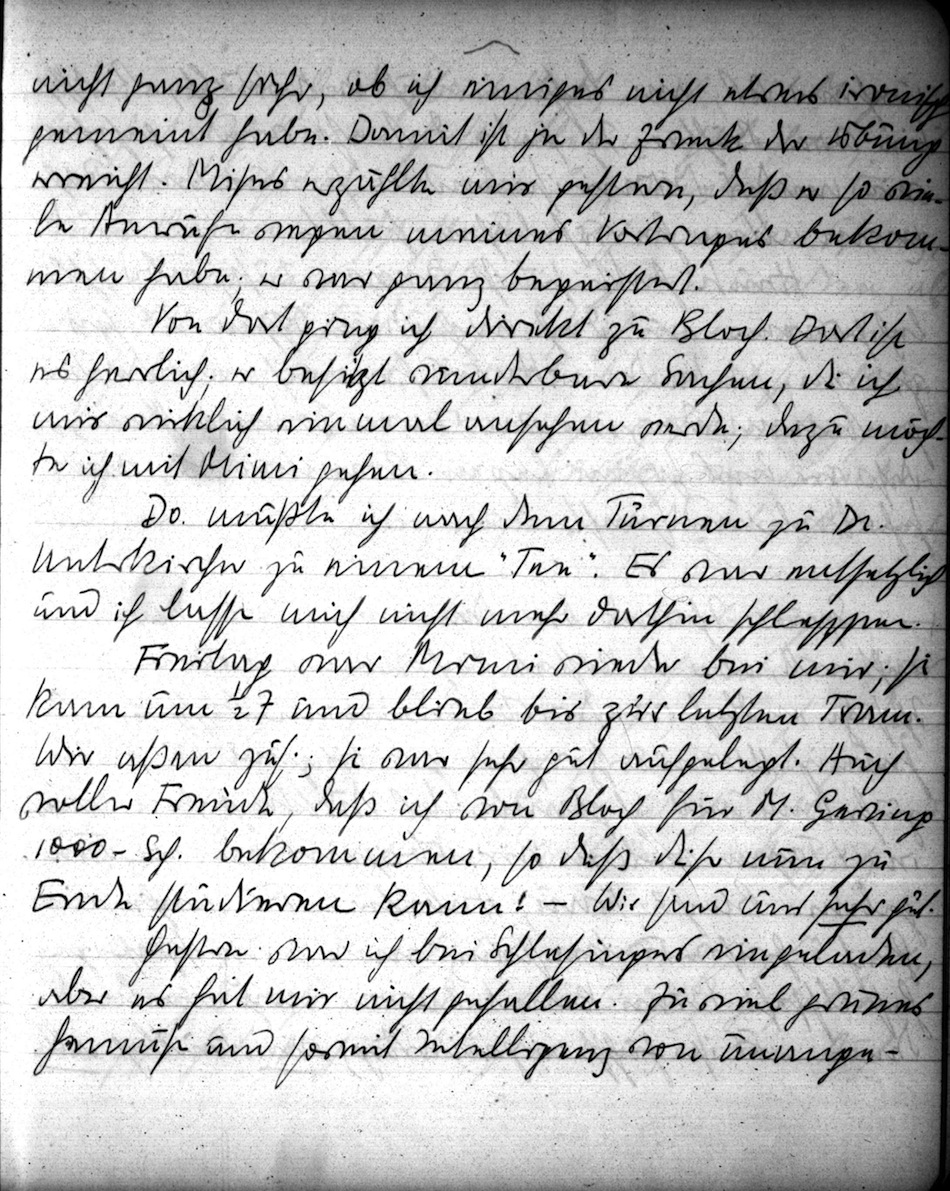 nicht ganz sicher, ob ich einiges nicht etwas ironisch
gemeint habe. Damit ist ja der Zweck der Übung
erreicht. Mises erzählte mir gestern, daß er so vie-
le Anrufe wegen meines Vortrages bekom-
men habe; er war ganz begeistert.
Von dort ging ich direkt zu Bloch. Dort ist
es herrlich; er besitzt wunderbare Sachen, die ich
mir wirklich einmal ansehen werde; dazu möch-
te ich mit Mimi gehen.
Do. mußte ich nach dem Turnen zu Dr.
Unterkircher zu einem "Tee". Es war entsetzlich
und ich lasse mich nicht mehr dorthin schleppen.
Freitag war Mimi wieder bei mir; sie
kam um ½7 und blieb bis zur letzten Tram.
Wir aßen zus.; sie war sehr gut aufgelegt. Auch
voller Freude, daß ich von Bloch für M. Gering
1000- Sch. bekommen, so daß diese nun zu
Ende studieren kann! – Wir sind uns sehr gut.
Gestern war ich bei Schlesingers eingeladen,
aber es hat mir nicht gefallen. Zu viel grünes
Gemüse und soweit Intelligenz von unange-